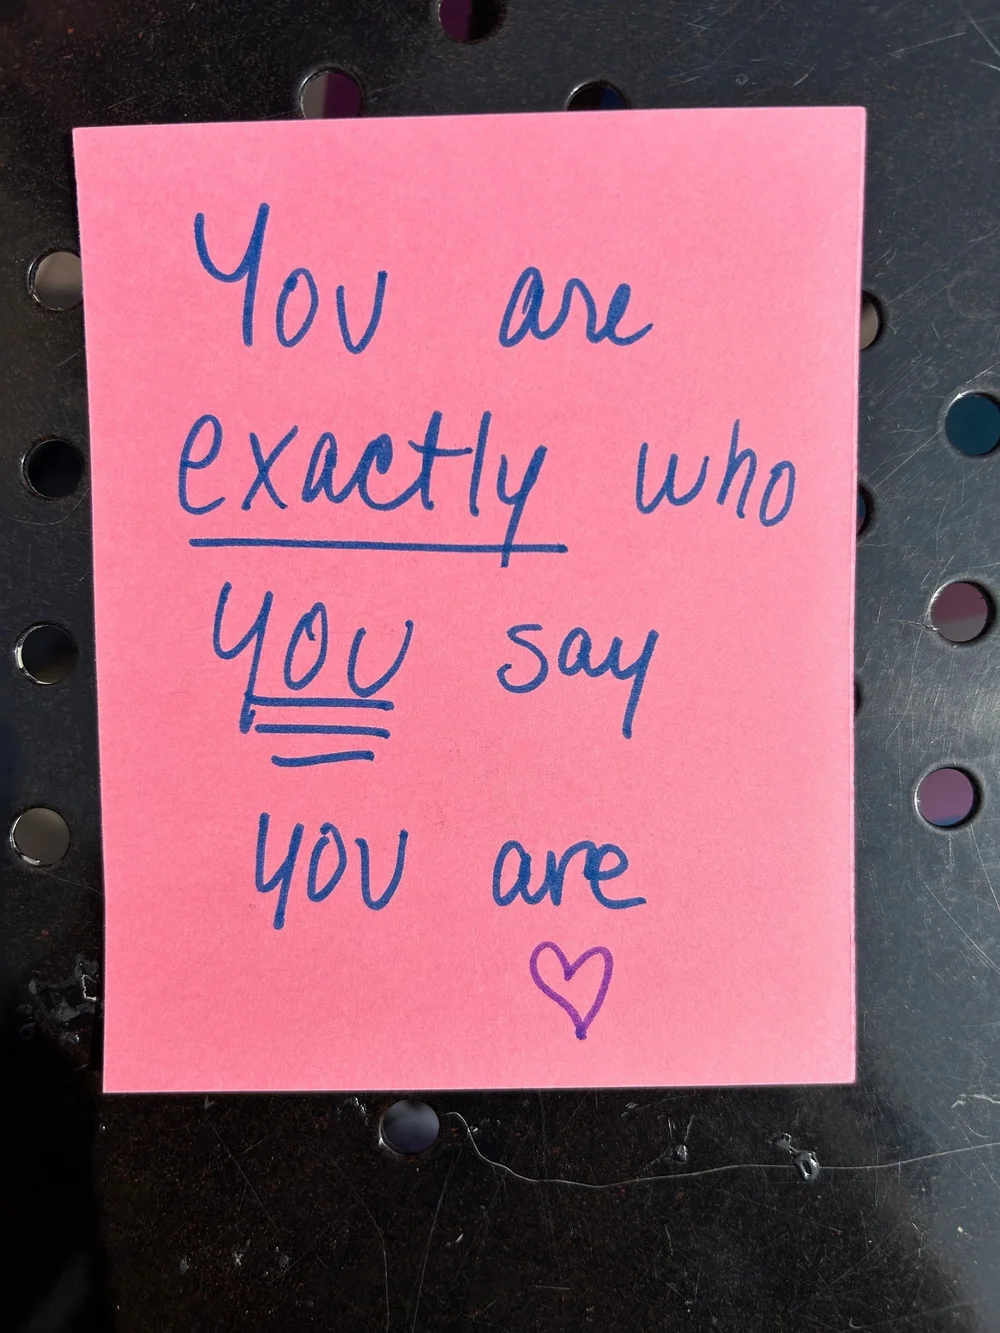 You are
exactly who
you say
you are